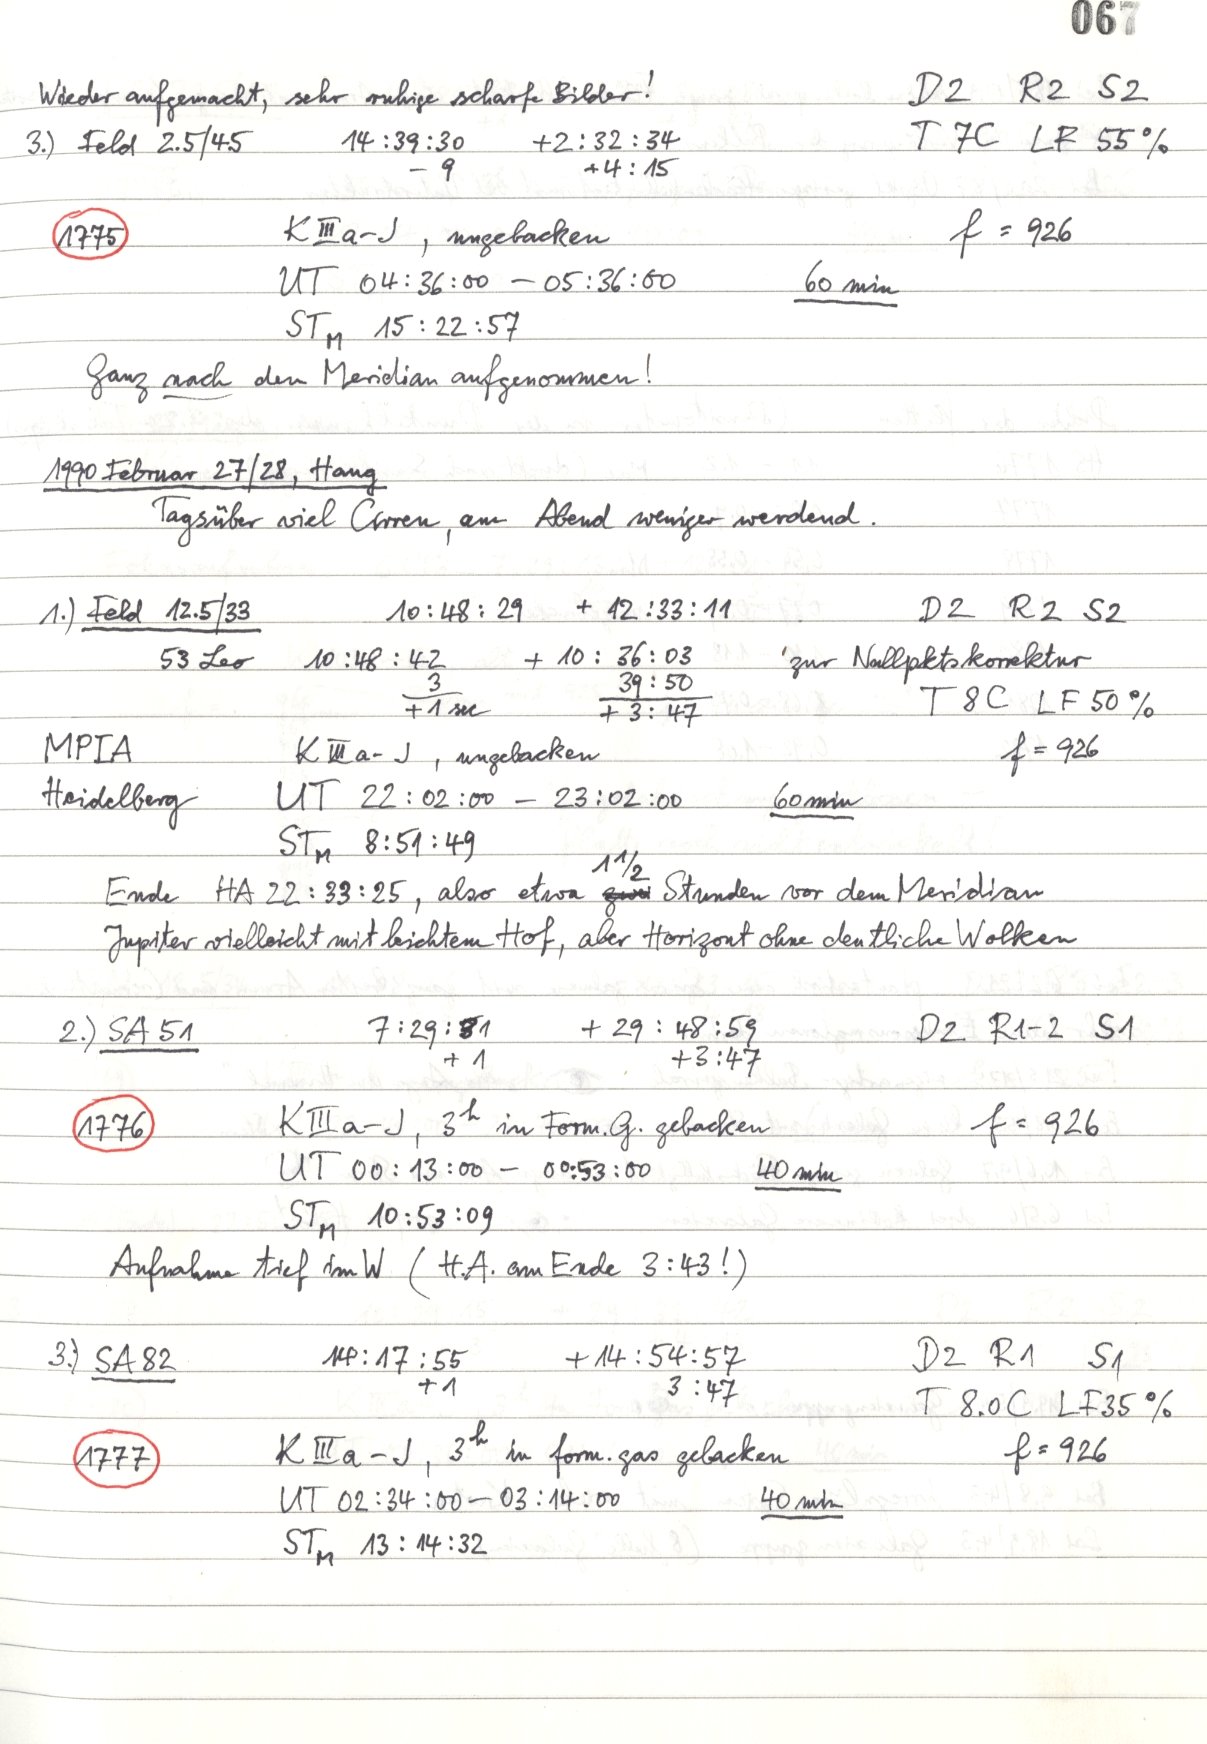 067
Wieder aufgemacht, sehr ruhige scharfe Bilder! D2 R2 S2
3.) Feld 2.5/45 14:39:30 +2:32:34 T 7C LF 55%
- 9 +4:15
1775 K III a-J, ungebacken f = 926
UT 04:36:00 - 05:36:00 60 min
ST M 15:22:57
Ganz nach dem Meridian aufgenommen!
1990 Februar 27/28, Hang
Tagsüber viel Cirren, am Abend weniger werdend.
1.) Feld 12.5/33 10:48:29 + 12:33:11 D2 R2 S2
53 Leo 10:48:42 + 10:36:03 zur Nullpktskorrektur
3 39:50
+1 sec + 3:47 T 8C LF 50%
MPIA K III a-J, ungebacken f = 926
Heidelberg UT 22:02:00 - 23:02:00 60 min
ST M 8:51:49
1 1/2
Ende HA 22:33:25, also etwa zwei Stunden vor dem Meridian
Jupiter vielleicht mit leichtem Hof, aber Horizont ohne deutliche Wolken
2.) SA 51 7:29:31 + 29:48:59 D2 R1-2 S1
+ 1 +3:47
1776 K III a-J, 3h in Form. G. gebacken f = 926
UT 00:13:00 - 00:53:00 40 min
ST M 10:53:09
Aufnahme tief im W (H.A. am Ende 3:43!)
3.) SA 82 14:17:55 +14:54:57 D2 R1 S1
+1 3:47
T 8.0C LF 35%
1777 K III a-J, 3h in form. gas gebacken f = 926
UT 02:34:00 - 03:14:00 40 min
ST M 13:14:32